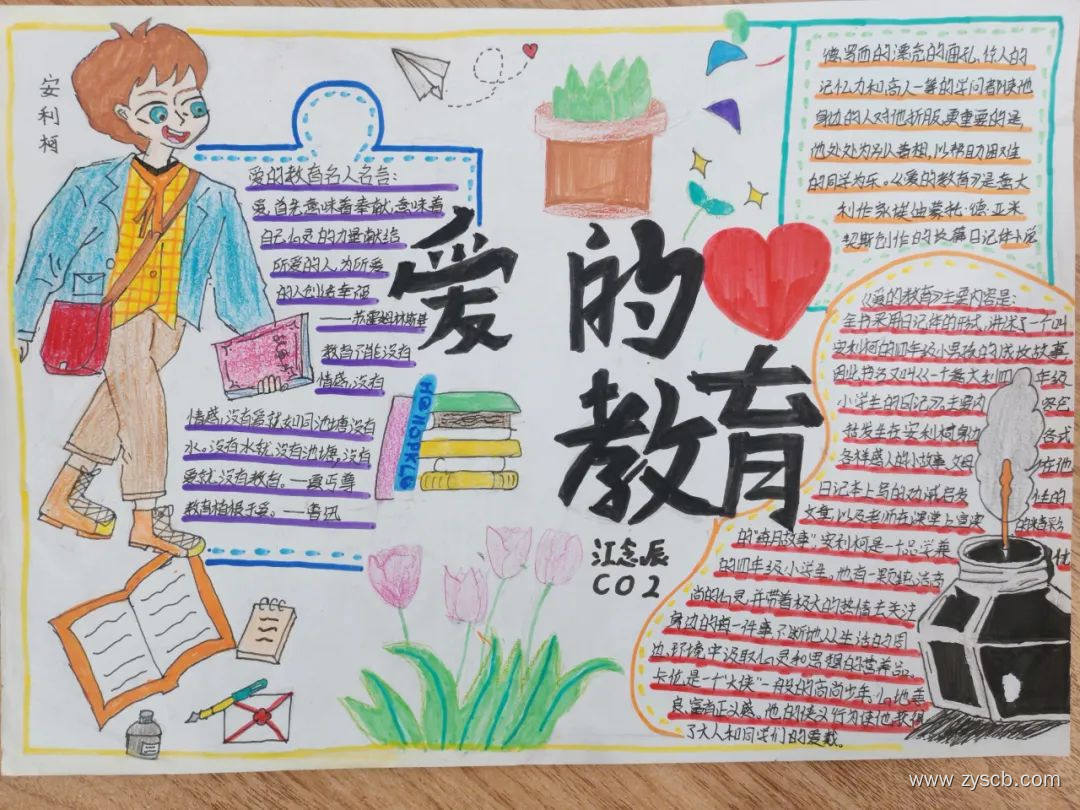 安利柯
爱的教育名人名言:
爱,首先意味着奉献,意味着
自己心灵的力量献给
所爱的人,为所爱
的人创造幸福
教育不能没有
情感,没有
情感,没有爱就如同池塘没有
水。没有水就没有池塘,没有
爱就没有教育。—夏丏尊
教育植根于爱。——鲁迅
爱的
教育
江念辰
CO2
德罗西的漂亮的面孔,惊人的
记忆力和高人一等的学问都使他
身边的人对他折服,更重要的是,
他处处为别人着想,以帮助困难
的同学为乐。《爱的教育》是意大
利作家埃迪蒙托·德·亚米
契斯创作的长篇日记体小说
《爱的教育》主要内容是:
全书采用日记体的形式,讲述了一个叫
安利柯的四年级小男孩的成长故事
因此书名又叫《一个意大利四年级
小学生的日记》。主要内
括发生在安利柯身边 各式
各样感人的小故事,父母 在他
日记本上写的劝诫启发
文章,以及老师在课堂上宣读
的"每月故事",安利柯是一个品学兼
的四年级小学生。他有一颗纯洁高
尚的心灵,并带着极大的热情去关注
身边的每一件事,不断地从生活的周
边环境中汲取心灵和思想的营养品。
卡伦是一个"大侠"一般的高尚少年,心地善
良,富有正义感。他的侠义行为使他获得
了大人和同学们的爱戴。
www.zyscb.com